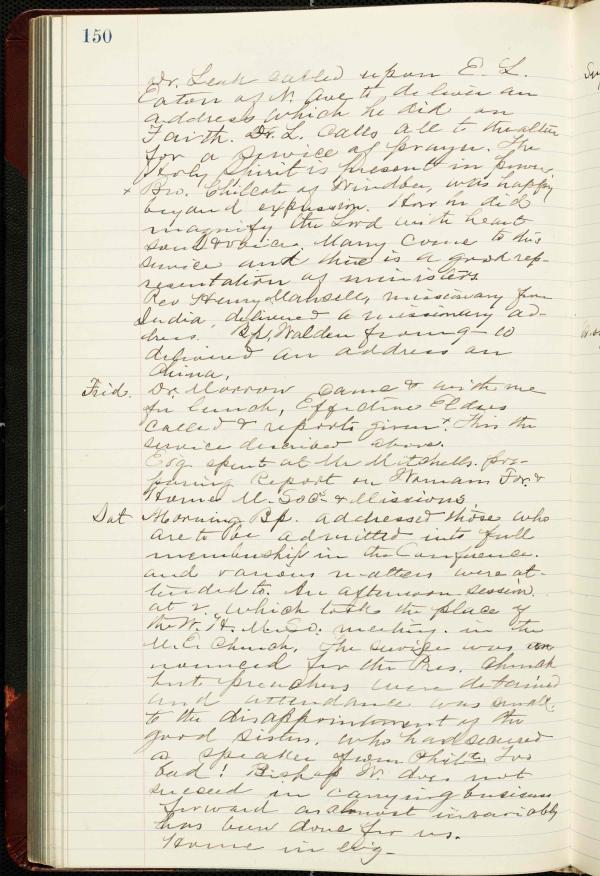 150
Dr. Leak called upon E. L.
Eaton of N. Ave to deliver an
address which he did on
Faith. Dr. L. calls all to the altar
for a service of prayer. The
Holy Spirit is present in power,
x Bro. Chilcote of Windber, was happy
beyond expression. How we did
magnify the Lord with heart
soul & voice. Many come to this
service and there is a good rep-
resentation of ministers
Rev Henry Mansell, missionary from
India, delivered a missionary ad-
dress. Bp. Walden 10
delivered an address on
China.
Frid. Dr. Morrow came & with me
to lunch, Effective Elders
called & reports given. This the
service described above.
Evg. spent at Mr Mitchells. pre-
paring Report on Womans For. &
Home M. Soc. & Missions.
Sat Morning Bp. addressed those who
are to be admitted into full
membership in the Conference.
and various matters were at-
tended to. An afternoon session
at 2. which took the place of
the W. H. M. So. meeting. in the
M. E. Church. The service was an
nounced for the Pres. Church
but preachers were detained
and attendance was small,
to the disappointment of the
good sisters. who had secured
a speaker from Phila Too
bad! Bishop W. does not
succeed in carrying business
forward as almost invariably
has been done for us.
Home in evg-